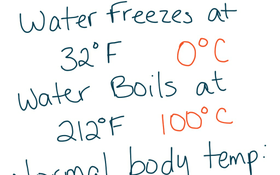 Water freezes at
32°F 0°C
Water Boils at
212°F 100°C
Normal body temp: